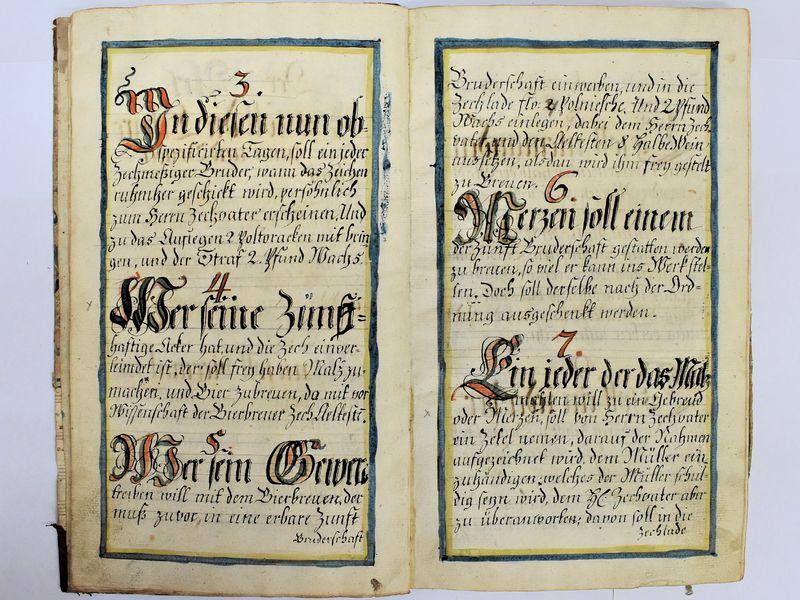 3.
In diesen nun ob-
spezifierten Tagen, soll ein jeder
Zechmeßiger Bruder, wann das Zeichen
ruhmher geschickt wird, persöhnlich
zum Herrn Zechvater erscheinen, Und
zu das Auflegen 2 Poltoracken mit brin
gen, und der Straf 2. Pfund Wachs.
4
Wer seine Zünf-
haftige Acker hat, und die Zech einver-
leindet ist, der soll frey haben Maltz zu
machen, und Bier zubreuen, da mit vor
Wissenschaft der Bierbreuer Zech Aeltesten.
5.
Wer sein Gewer
treiben will mit dem Bierbreuen, der
muß zuvor, in eine erbare Zunft
Bruderschaft
Bruderschaft einwerben, und in die
Zechlade flo. 2 Polniesche, Und 2 Pfund
Wachs einlegen, dabei dem Herrn Zech
vater, und den Aeltesten 8 Halbe Wein
aufsetzen, als dan wird ihm frey gestelt
zu Breuen.
6.
Merzen soll einem
der Zunft Bruderschaft gestatten werden
zu breuen, so viel er kann ins Werk stel-
len, Doch soll derselbe nach der Ord-
nung ausgeschenkt werden.
7.
Ein jeder der das Maltz
machlen will zu ein Gebreud
oder Merzen, soll von Herrn Zechvater
ein Zetel nemen, darauf der Nahmen
aufgezeichnet wird, dem Müller ein
zuhändigen, welches der Müller schul-
dig seyn wird, dem H. Zechvater aber
zu überanworten; davon soll in die
Zechlade